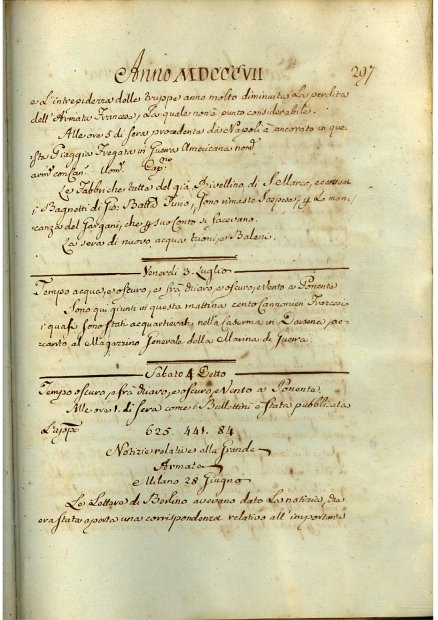 Anno MDCCCVII
297
e l'intrepidezza delle truppe anno molto diminuita la perdita
dell'Armata Francese, la quale non à punto considerabile.
Alle ore 5 di sera procedente da Napoli à ancorato in que-
sta Piaggia Fregata in Guerra Americana nom.
arm. con Can. Uom. Cap.no
Le Fabbriche tutte del già Rivellino di S. Marco, eccettuati
i Bagnetti di Gio: Batta sono rimaste sospese, p. la man-
canza dei Pargani, che p. suo Conto si facevano.
La sera di nuovo acqua tuoni, e Baleni.
Venerdì 3. Luglio
Tempo acqua, e oscuro, e frà chiaro, e oscuro, e Vento a Ponente
Sono qui giunti in questa mattina cento Cannonieri Francesi
i quali sono stati acquartierati nella Caserma in Darsena, ac-
canto al Magazzino Generale della Marina di Guerra.
Sabato 4 Detto
Tempo oscuro, e frà chiaro, e oscuro, e Vento a Ponente
Alle ore 1. di sera come i Bullettini è stata pubblicata
L'app.
625. 441. 84
Notizie relative alla Grande
Armata
Milano 28 Giugno
Le Lettere di Berlino avevano dato la notizia, che
era stata aperta una corrispondenza relativo all'importante